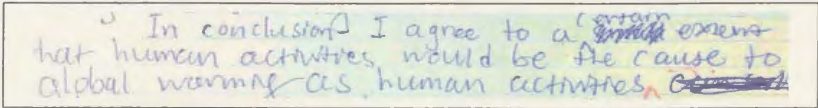 In conclusion, I agree to a certain extent
that human activities would be the cause to
global warming as human activities,